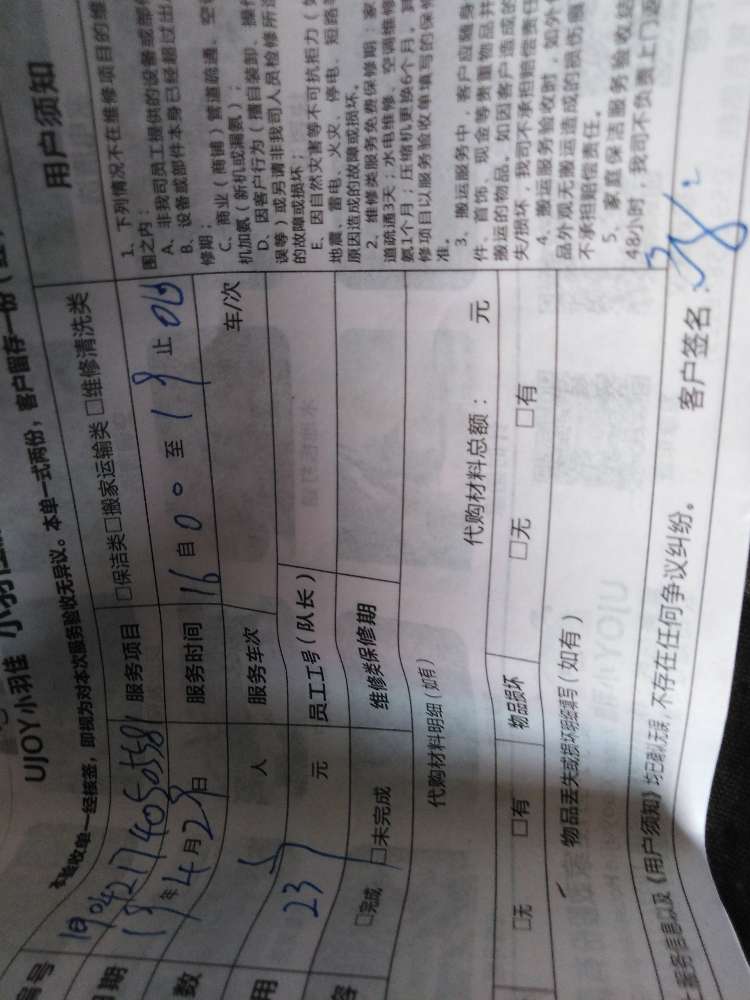 UJOY小羽佳
本验收单一经核签，即视为对本次服务验收无异议。本单一式两份，客户留存一份
编号
服务项目 □保洁类□搬家运输类 □维修清洗类
日期 19年4月29日
服务时间 16自00至19止00
数 人
服务车次 车/次
用 23 元
员工工号（队长）
容 □完成 □未完成
维修类保修期
代购材料明细（如有）
代购材料总额： 元
□无 □有
物品损坏
□无 □有
物品丢失或损坏明细填写（如有）
服务信息以及《用户须知》均已确认无误，不存在任何争议纠纷。
客户签名：
用户须知
1、下列情况不在维修项目的维
围之内：
A、非我司员工提供的设备或部件
B、设备或部件本身已经超过出
修期；
C、商业（商铺）管道疏通、空
机加氨（新机或漏氨）；
D、因客户行为（擅自装卸、操
误等）或另请非我司人员检修所
的故障或损坏；
E、因自然灾害等不可抗拒力（如
地震、雷电、火灾、停电、短路
原因造成的故障或损坏。
2、维修类服务免费保修期：家
道疏通3天；水电维修、空调维修
氨1个月；压缩机更换6个月。其
修项目以服务验收单填写的保修
准。
3、搬运服务中，客户应随身
件、首饰、现金等贵重物品并
搬运的物品。如因客户造成的
失/损坏，我司不承担赔偿责任
4、搬运服务验收时，如外
品外观无搬运造成的损伤痕
不承担赔偿责任。
5、家庭保洁服务验收结
48小时，我司不负责上门返